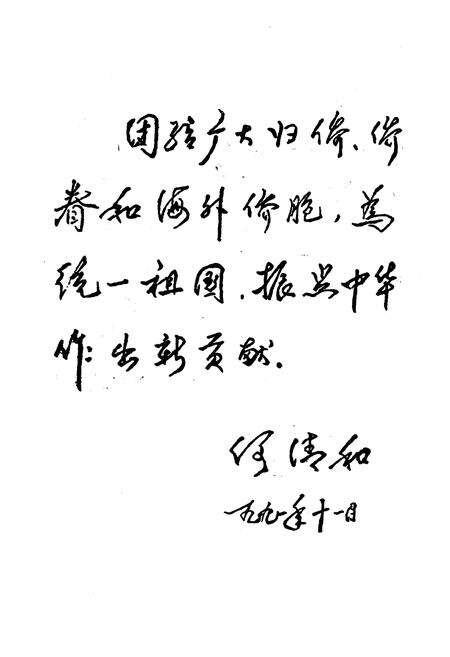 团结广大归侨、侨
眷和海外侨胞，为
统一祖国、振兴中华
作出新贡献。
何清和
一九九一年十一月